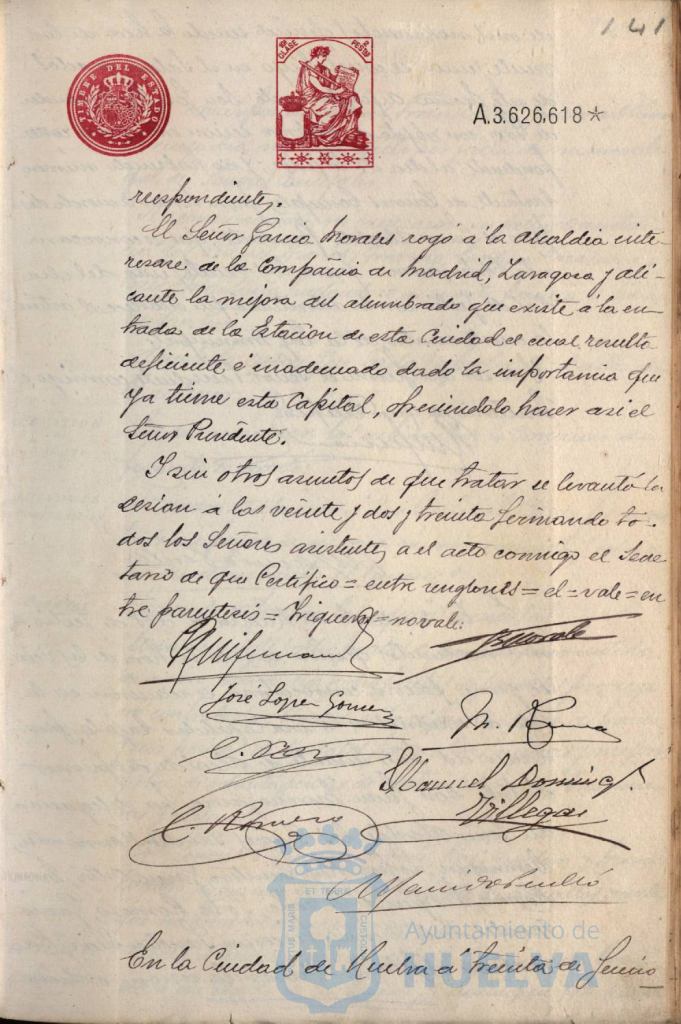 141
TIMBRE DEL ESTADO
CLASE
2 PESTAS
A.3.626,618*
rrespondientes.
El Señor Garcia Morales rogó á la alcaldia inte-
resase de la Compañia de Madrid, Zaragosa y ali-
cante la mejora del alumbrado que existe á la en-
trada de la Estacion de esta Ciudad el cual resulta
deficiente é inadecuado dado la importancia que
ya tiene esta Capital, ofreciendolo hacer asi el
Señor Presidente.
Y sin otros asuntos de que tratar se levantó la
sesion á las veinte y dos y treinta firmando to-
dos los Señores asistentes a el acto conmigo el Secre
tario de que Certifico = entre renglones = el = vale = en
tre parentesis = Trigueros = no vale:
José Lopez Gomez
C. Romero
Manuel Doming.
Villegas
ET TERRAE
Ayuntamiento de
HUELVA
En la Ciudad de Huelva á treinta de Junio